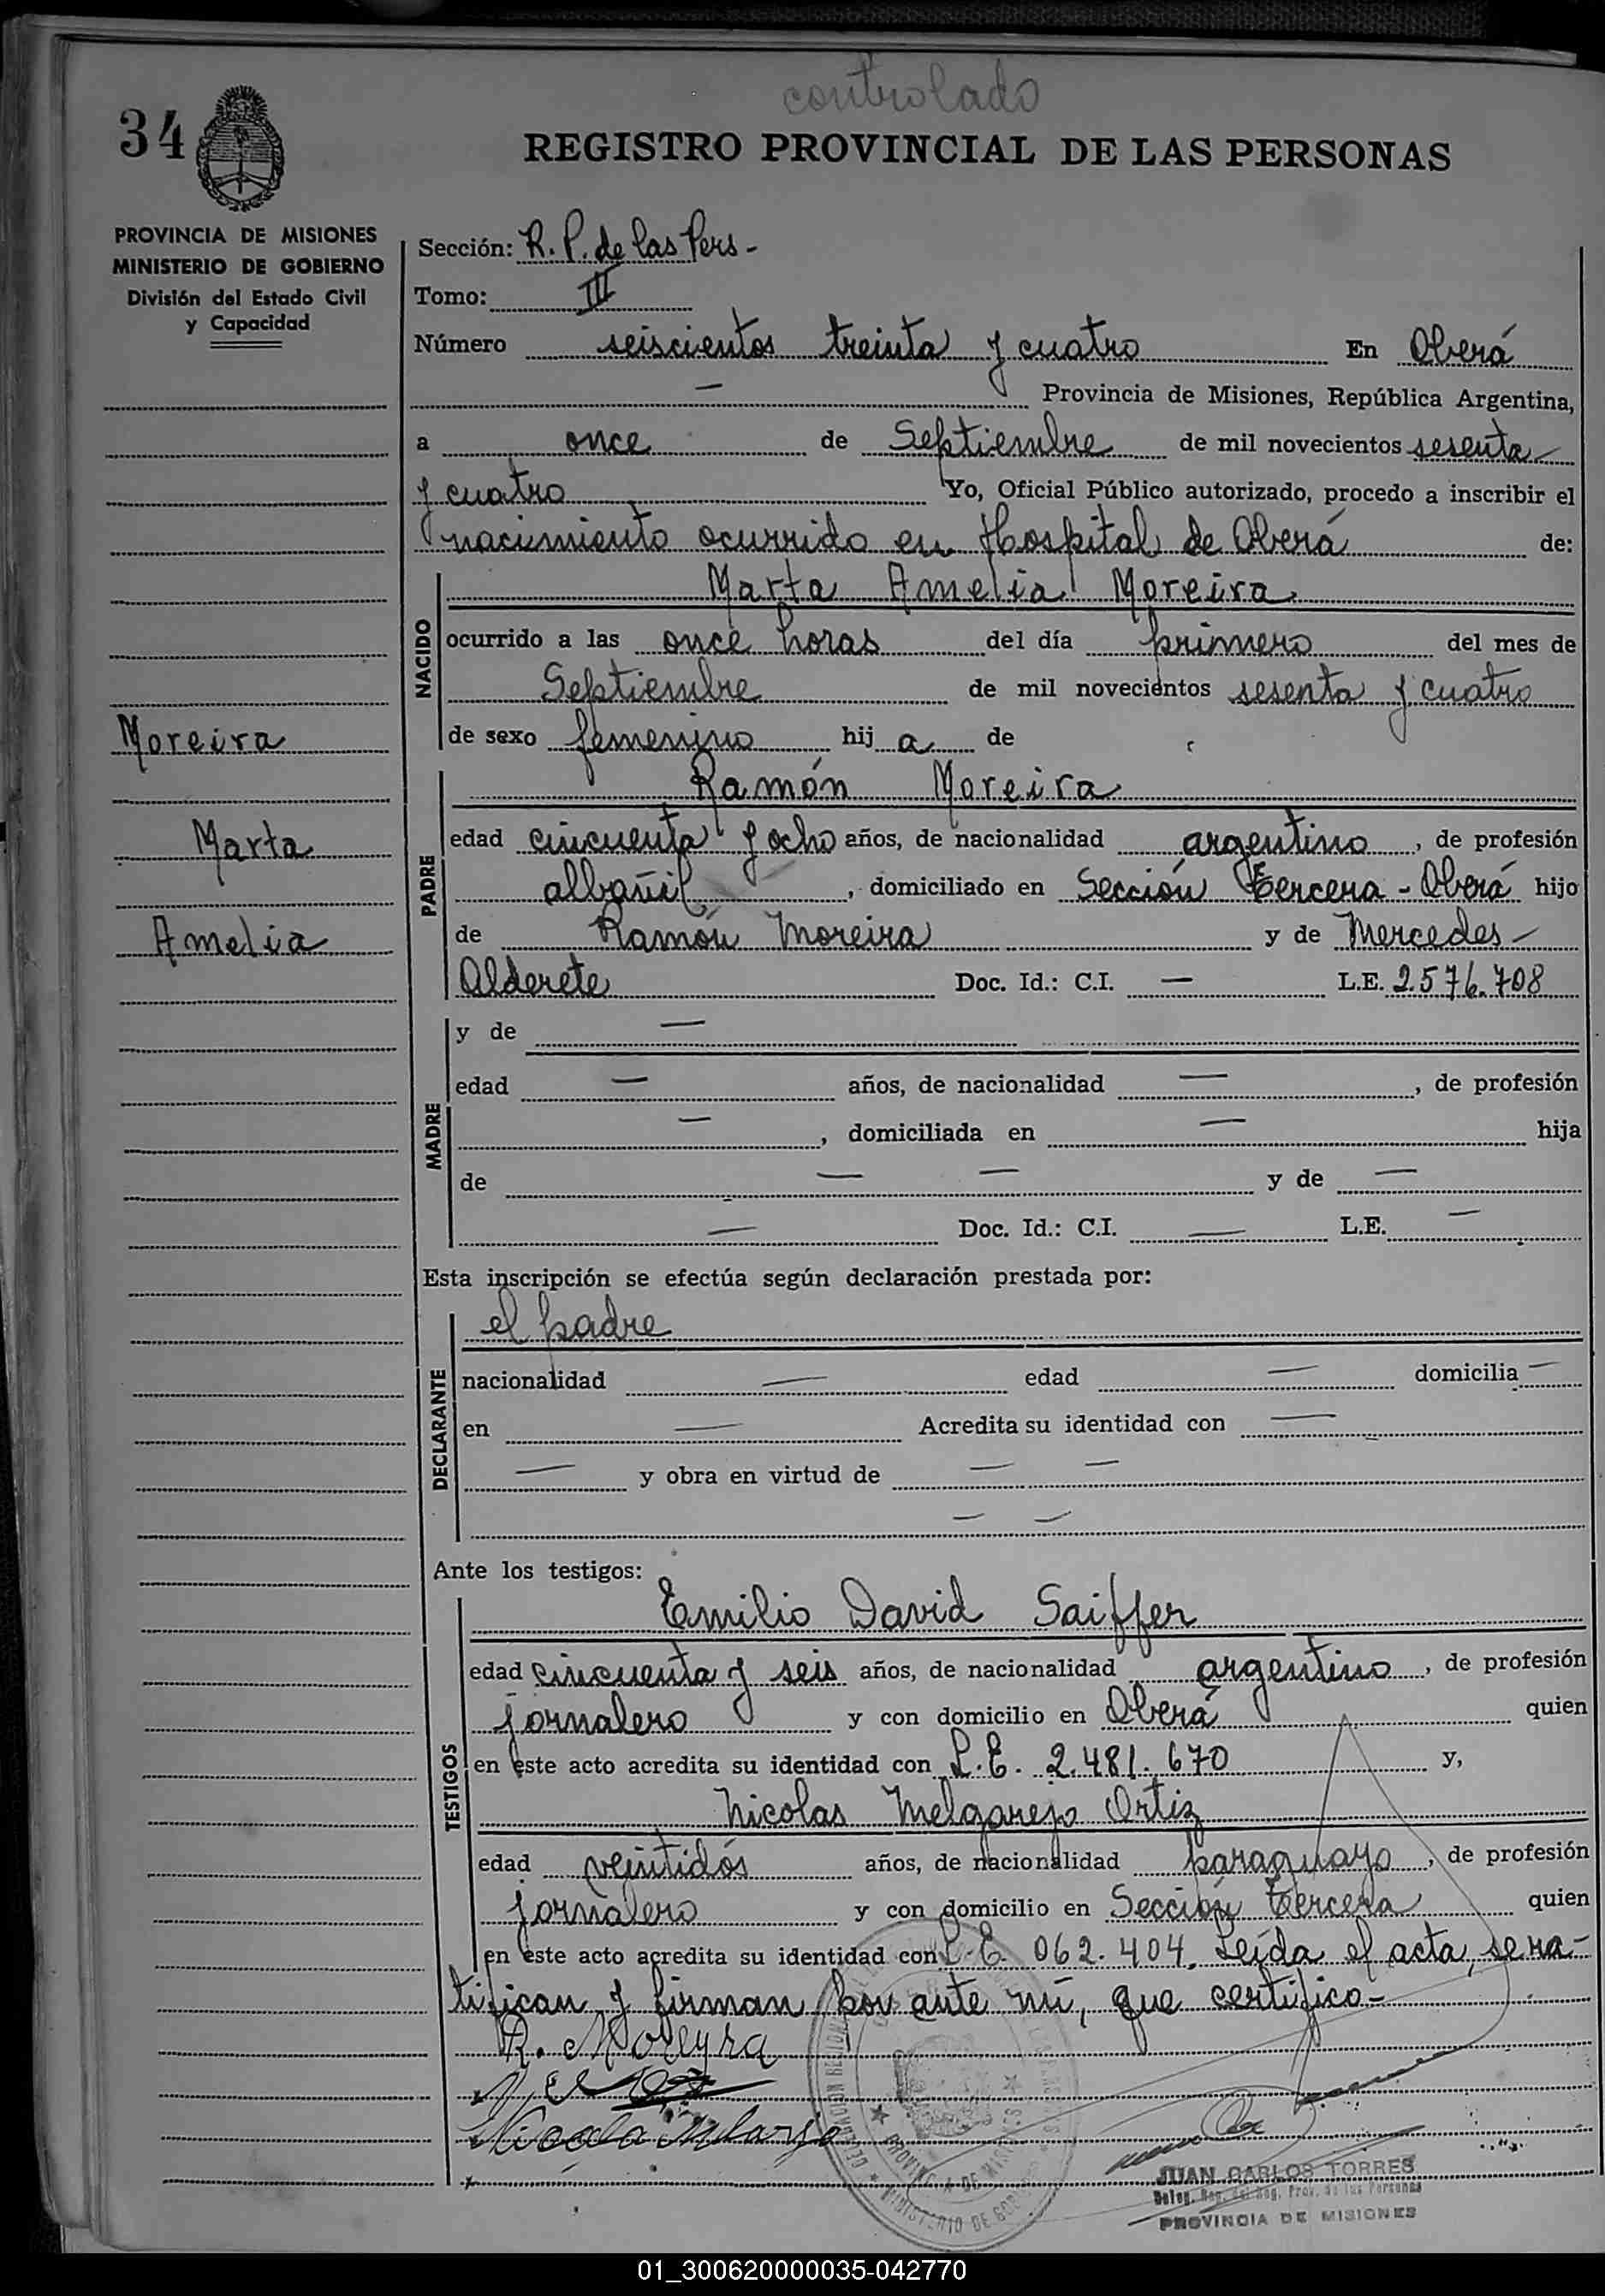 controlado
34
REGISTRO PROVINCIAL DE LAS PERSONAS
PROVINCIA DE MISIONES
MINISTERIO DE GOBIERNO
División del Estado Civil
y Capacidad
Sección: R. P. de las Pers -
Tomo: III
Número seiscientos treinta y cuatro En Oberá
— Provincia de Misiones, República Argentina,
a once de Septiembre de mil novecientos sesenta
y cuatro Yo, Oficial Público autorizado, procedo a inscribir el
nacimiento ocurrido en Hospital de Oberá de:
NACIDO
Marta Amelia Moreira
ocurrido a las once horas del día primero del mes de
Septiembre de mil novecientos sesenta y cuatro
de sexo femenino hij a de
Moreira
Marta
Amelia
PADRE
Ramón Moreira
edad cincuenta y ocho años, de nacionalidad argentino, de profesión
albañil, domiciliado en Sección Tercera - Oberá hijo
de Ramón Moreira y de Mercedes -
Alderete Doc. Id.: C.I. — L.E. 2.576.708
MADRE
y de —
edad — años, de nacionalidad —, de profesión
—, domiciliada en — hija
de — — y de —
— Doc. Id.: C.I. — L.E. —
Esta inscripción se efectúa según declaración prestada por:
DECLARANTE
el padre
nacionalidad — edad — domicilia —
en — Acredita su identidad con —
— y obra en virtud de — —
— —
Ante los testigos:
TESTIGOS
Emilio David Saiffer
edad cincuenta y seis años, de nacionalidad argentino, de profesión
jornalero y con domicilio en Oberá quien
en este acto acredita su identidad con L.E. 2.481.670 y,
Nicolas Melgarejo Ortiz
edad veintidós años, de nacionalidad paraguayo, de profesión
jornalero y con domicilio en Sección Tercera quien
en este acto acredita su identidad con L.E. 062.404. Leída el acta, se ra-
tifican y firman por ante mí, que certifico -
R. Moreyra
JUAN CARLOS TORRES
Deleg. Reg. del Reg. Prov. de las Personas
PROVINCIA DE MISIONES
PROVINCIA DE MISIONES
MINISTERIO DE GOBIERNO
01_300620000035-042770